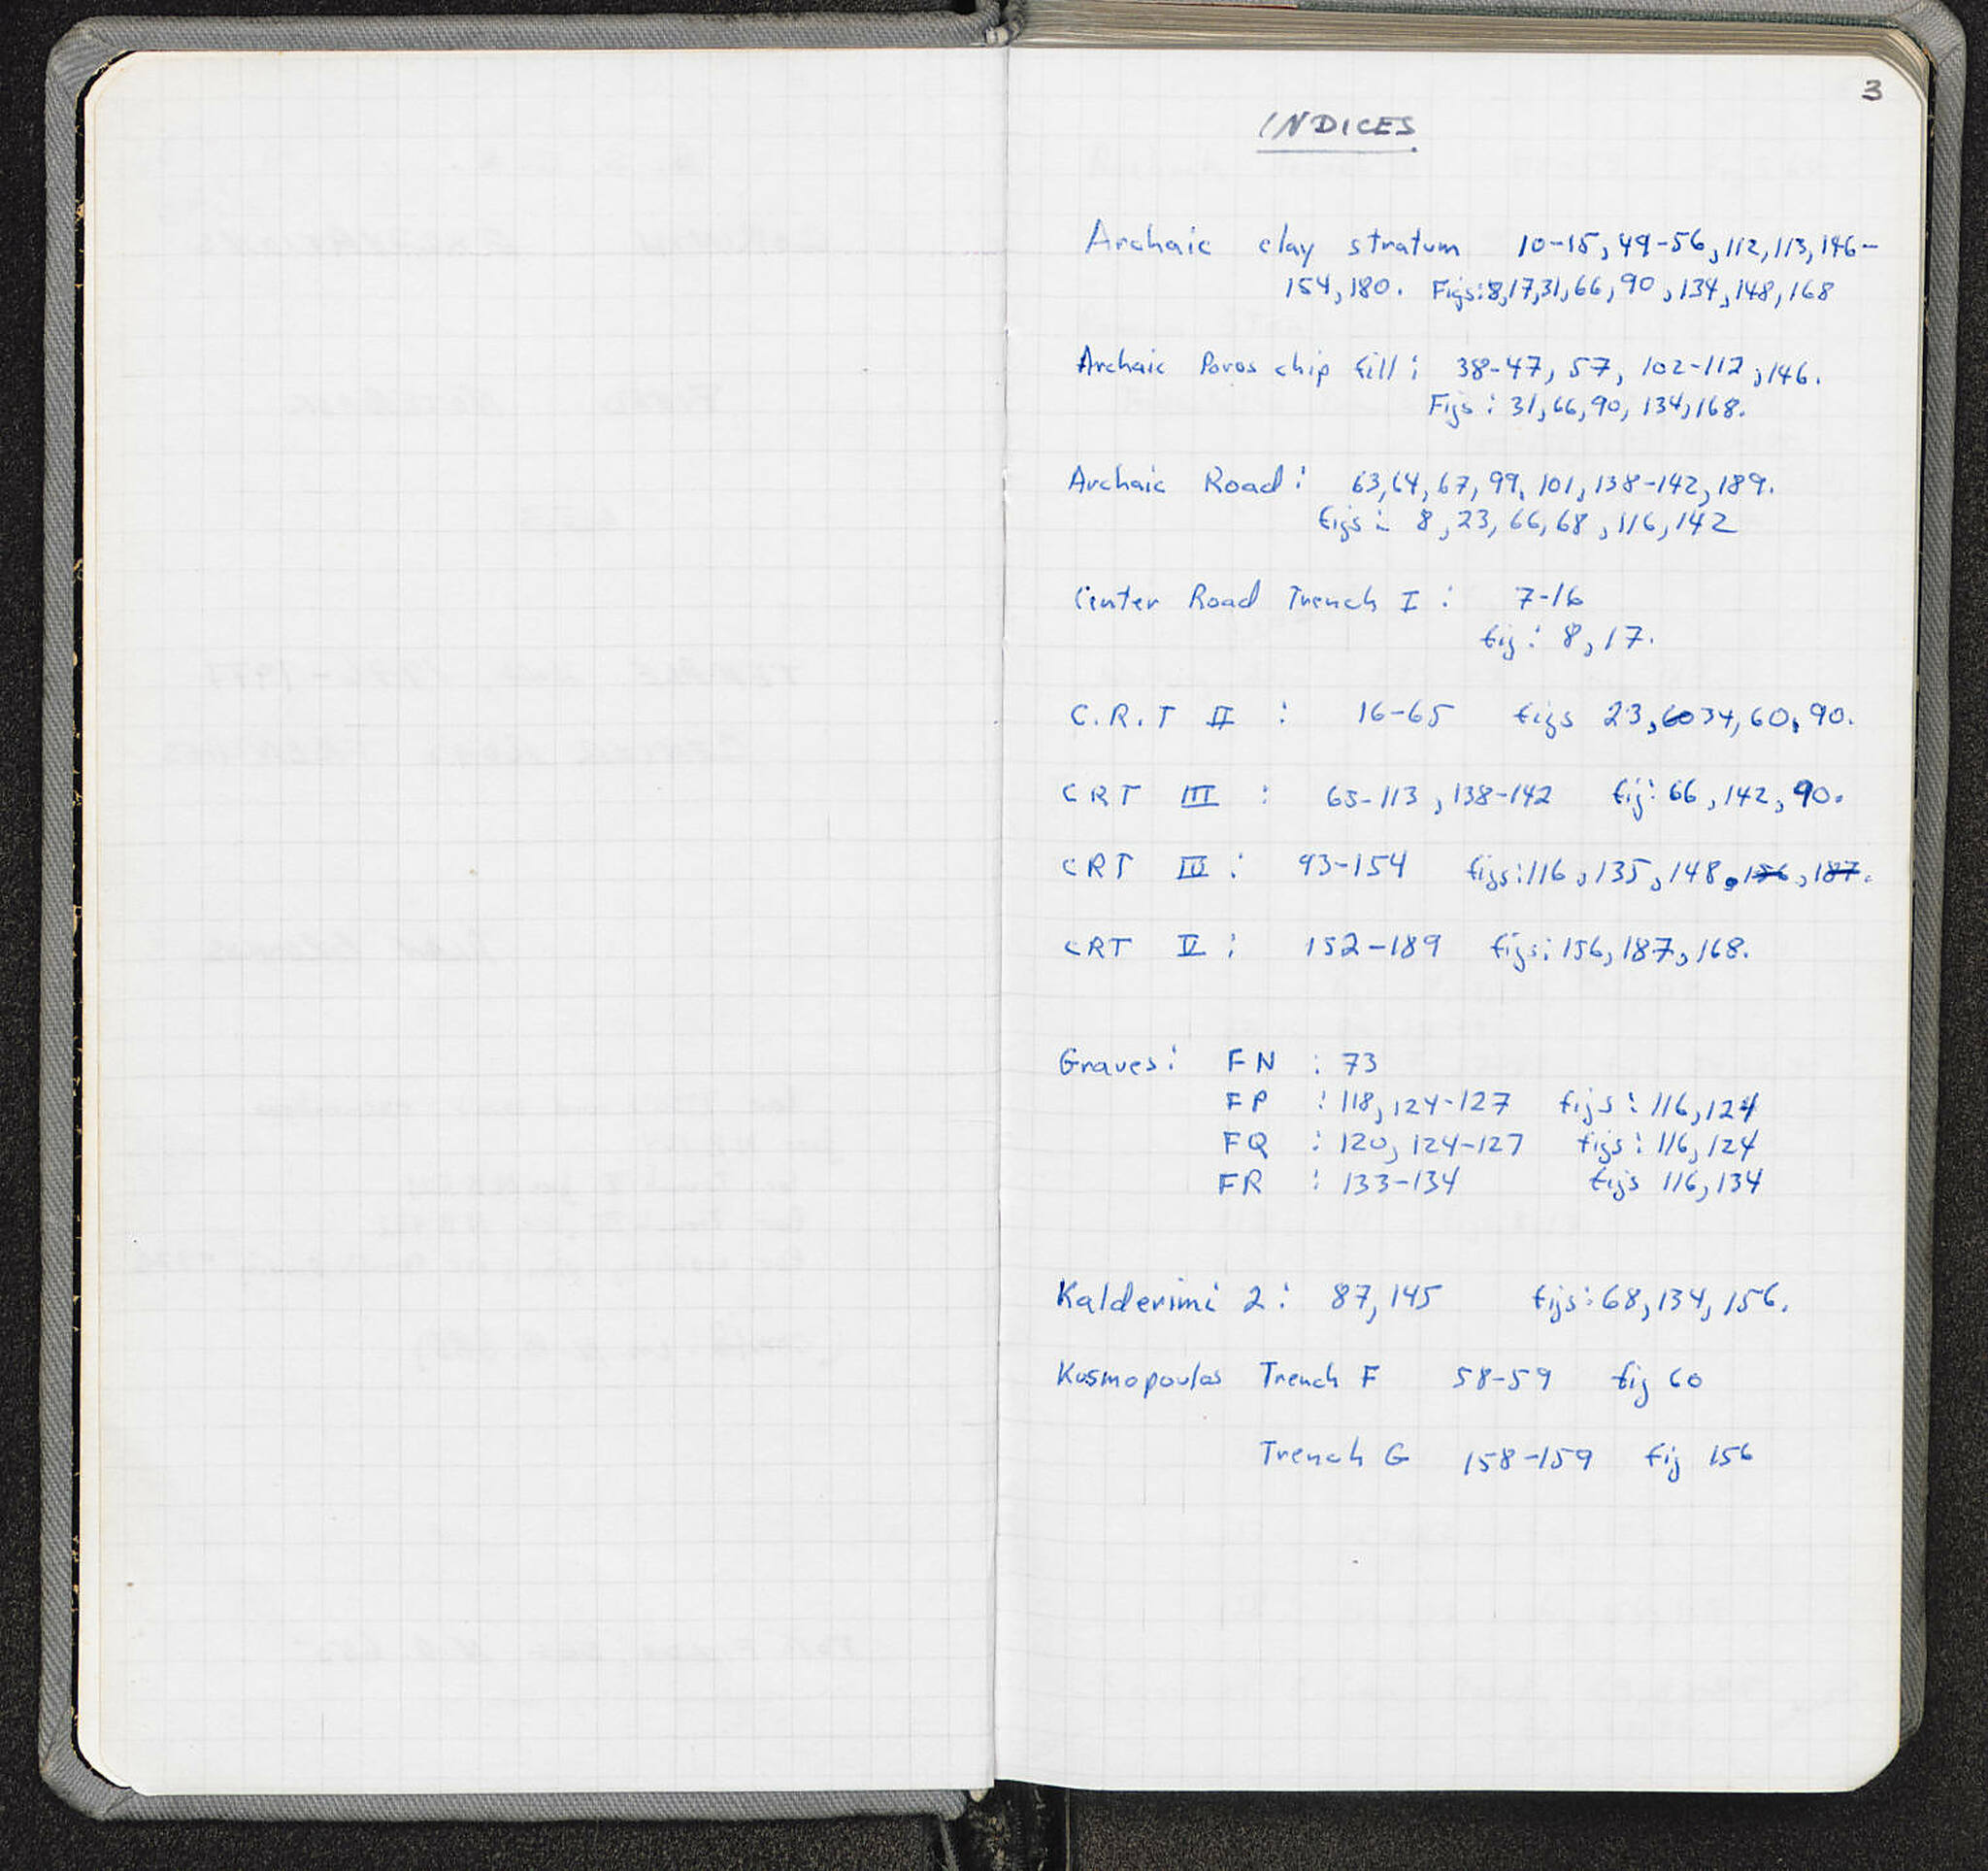 3
INDICES
Archaic clay stratum 10-15, 49-56, 112, 113, 146-
154, 180. Figs: 8, 17, 31, 66, 90, 134, 148, 168
Archaic Poros chip fill: 38-47, 57, 102-112, 146.
Figs: 31, 66, 90, 134, 168.
Archaic Road: 63, 64, 67, 99, 101, 138-142, 189.
figs: 8, 23, 66, 68, 116, 142
Center Road Trench I: 7-16
fig: 8, 17.
C.R.T II: 16-65 figs 23, 60 34, 60, 90.
CRT III: 65-113, 138-142 fig: 66, 142, 90.
CRT IV: 93-154 figs: 116, 135, 148, 156, 187.
CRT V: 152-189 figs: 156, 187, 168.
Graves: FN: 73
FP: 118, 124-127 figs: 116, 124
FQ: 120, 124-127 figs: 116, 124
FR: 133-134 figs 116, 134
Kalderimi 2: 87, 145 figs: 68, 134, 156.
Kosmopoulos Trench F 58-59 fig 60
Trench G 158-159 fig 156